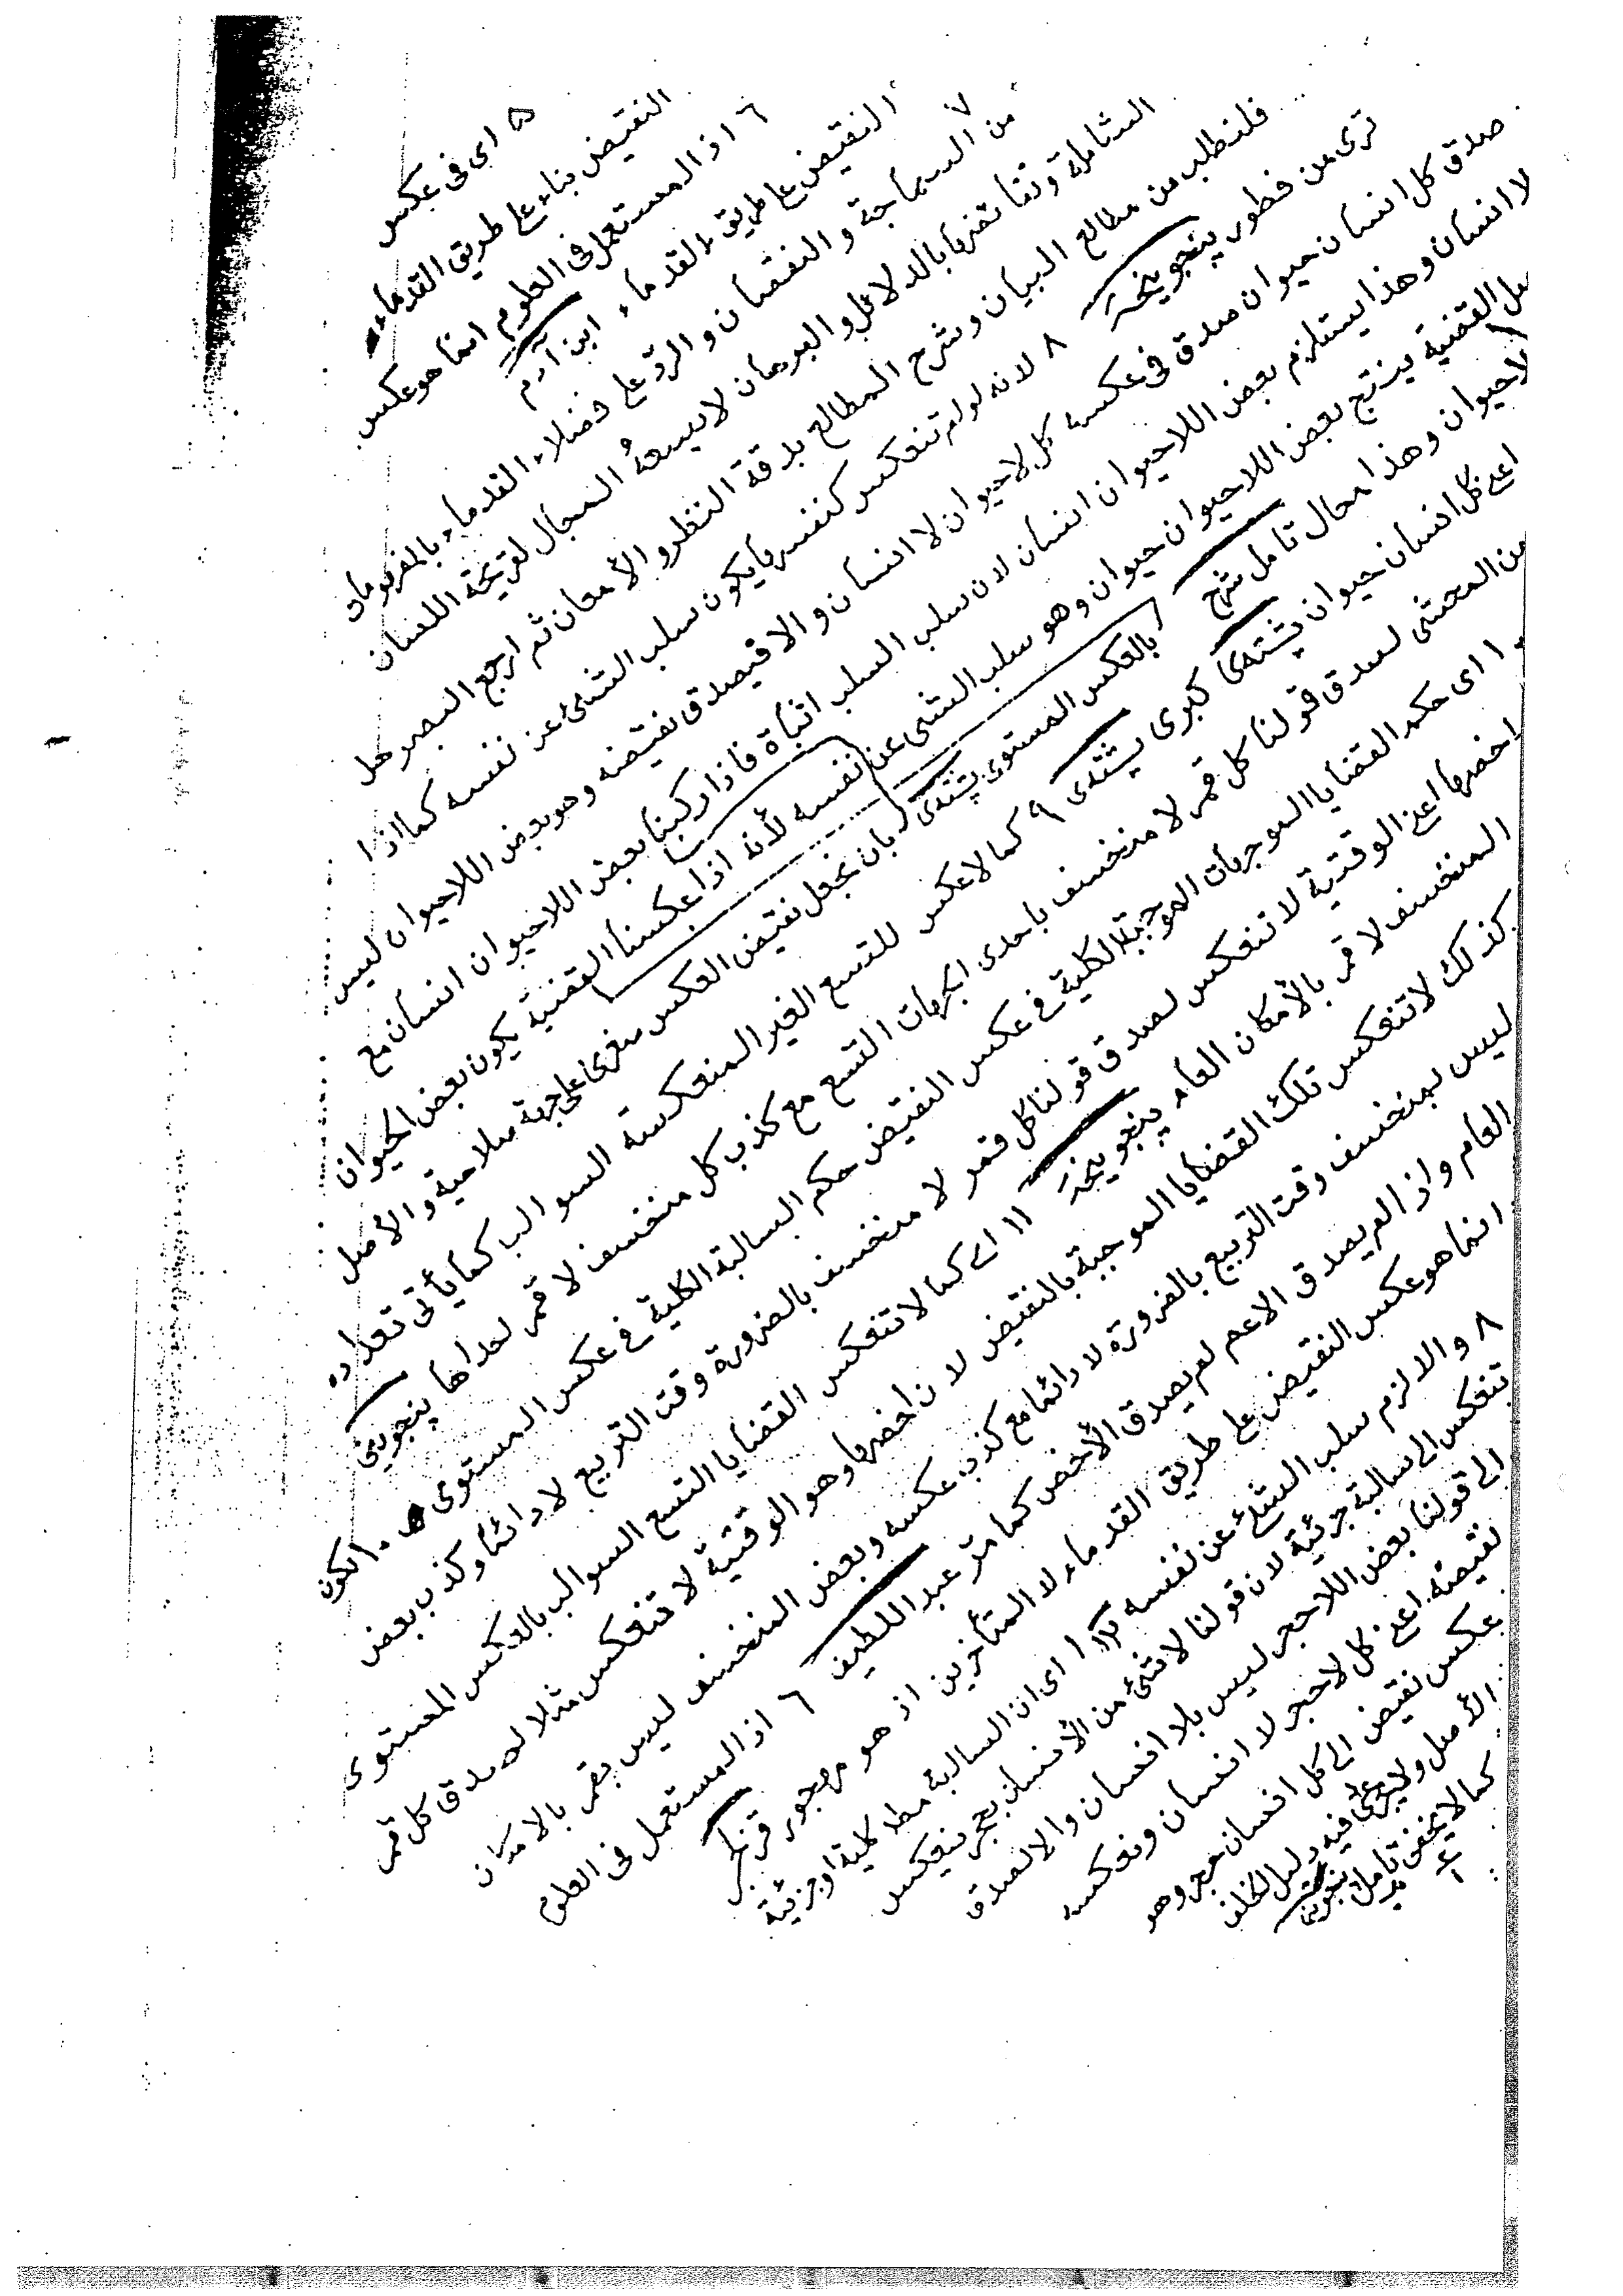 ٥ اى فى عكس
النقيض بناء على طريق القدماء
٦ اذ المستعمل فى العلوم انما هو عكس
النقيض على طريق القدماء ابن آدم
٧ من السماجة والنقصان والرد على فضلاء القدماء بالمفهومات
الشاملة ونقائضها بالدلائل والبرهان لا يسعهُ المجال لقريحة اللسان
فلنطلب من مطالع البيان وشرح المطالع بدقة النظر والأمعان ثم ارجع البصر هل
ترى من فطور پنجوينى ٨ لانه لو لم تنعكس كنفسها يكون سلب الشئ عن نفسه كما اذا
صدق كل انسان حيوان صدق فى عكسه كل لاحيوان لا انسان والا فيصدق نقيضه وهو بعض اللاحيوان ليس
لا انسان وهذا يستلزم بعض اللاحيوان انسان لان سلب السلب اثباة فاذا ركبنا بعض اللاحيوان انسان مع
اصل القضية ينتج بعض اللاحيوان حيوان وهو سلب الشئ عن نفسه لأنه اذا عكسنا القضية يكون بعض الحيوان
لاحيوان وهذا محال تامل شرح بالعكس المستوى بان نجعل نقيض العكس صغرى والأصل
اعنى كل انسان حيوان كبرى ٩ كما لا عكس للتسع الغير المنعكسة السوالب كما يأتى تعداده
من المحشى لصدق قولنا كل قمر لا منخسف باحدى الجهات التسع مع كذب كل منخسف لا قمر پنجوينى
١٠ اى حكم القضايا الموجبات الموجبة الكلية فى عكس النقيض حكم السالبة الكلية فى عكس المستوى ١٠ لكون
اخصها اعنى الوقتية لا تنعكس لصدق قولنا كل قمر لا منخسف بالضرورة وقت التربيع لا دائما وكذب بعض
المنخسف لا قمر بالأمكان العام پنجوينى ١١ اے كما لا تنعكس القضايا التسع السوالب بالعكس المستوى
كذلك لا تنعكس تلك القضايا الموجبة بالنقيض لان اخصها وهو الوقتية لا تنعكس مثلا لصدق كل قمر
ليس بمنخسف وقت التربيع بالضرورة لا دائما مع كذب عكسه وبعض المنخسف ليس بقمر بالامكان
العام واذا لم يصدق الاعم لم يصدق الأخص كما مرّ عبد اللطيف ٦ اذ المستعمل فى العلوم
انما هو عكس النقيض على طريق القدماء لا المتأخرين اذ هو مهجور قزلجى
٨ والا لزم سلب الشئ عن نفسه ١٢ اى ان السالبة مط كلية او جزئية
تنعكس الى سالبة جزئية لان قولنا لا شئ من الأنسان بحجر ينعكس
الى قولنا بعض اللاحجر ليس بلا انسان والا لصدق
نقيضه اعنى كل لاحجر لا انسان ونعكسه
بعكس نقيض الى كل انسان حجر وهو
الأصل ولا يجرى فيه دليل الخلف
كما لا يخفى تامل پنجوينى